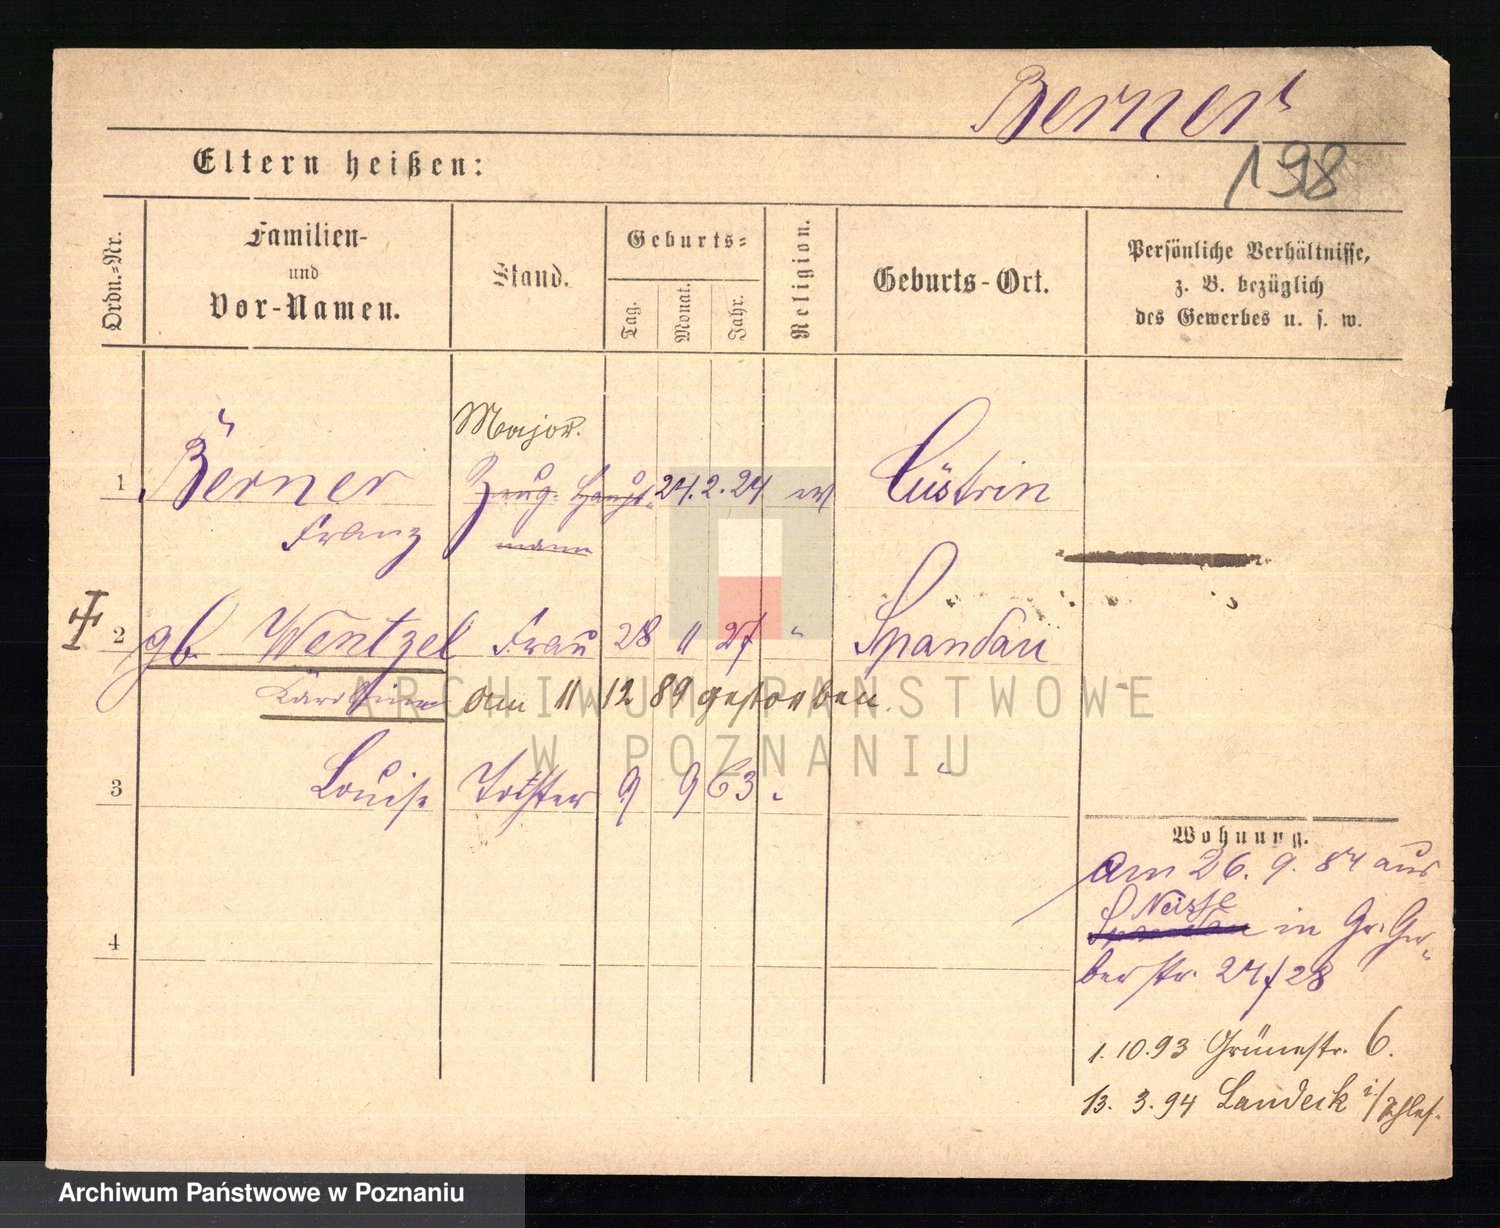 Berner
198
Eltern heißen:
Ordn.-Nr.
Familien-
und
Vor-Namen.
Stand.
Geburts-
Tag.
Monat.
Jahr.
Religion.
Geburts-Ort.
Persönliche Verhältnisse,
z. B. bezüglich
des Gewerbes u. s. w.
Major.
1 Berner Zeug. Haupt- 24. 2. 24 ev Cüstrin
Franz mann
2 gb. Wentzel Frau 28 11 27 " Spandau
Karoline am 11 12 89 gestorben.
3 Louise Tochter 9 9 63 " "
4
Wohnung.
Am 26. 9. 84 aus
Neisse
Spandau in Gr. Ger-
berstr. 27/28
1. 10. 93 Grünestr. 6.
13. 3. 94 Landeck i/Schles.
ARCHIWUM PAŃSTWOWE
W POZNANIU
Archiwum Państwowe w Poznaniu